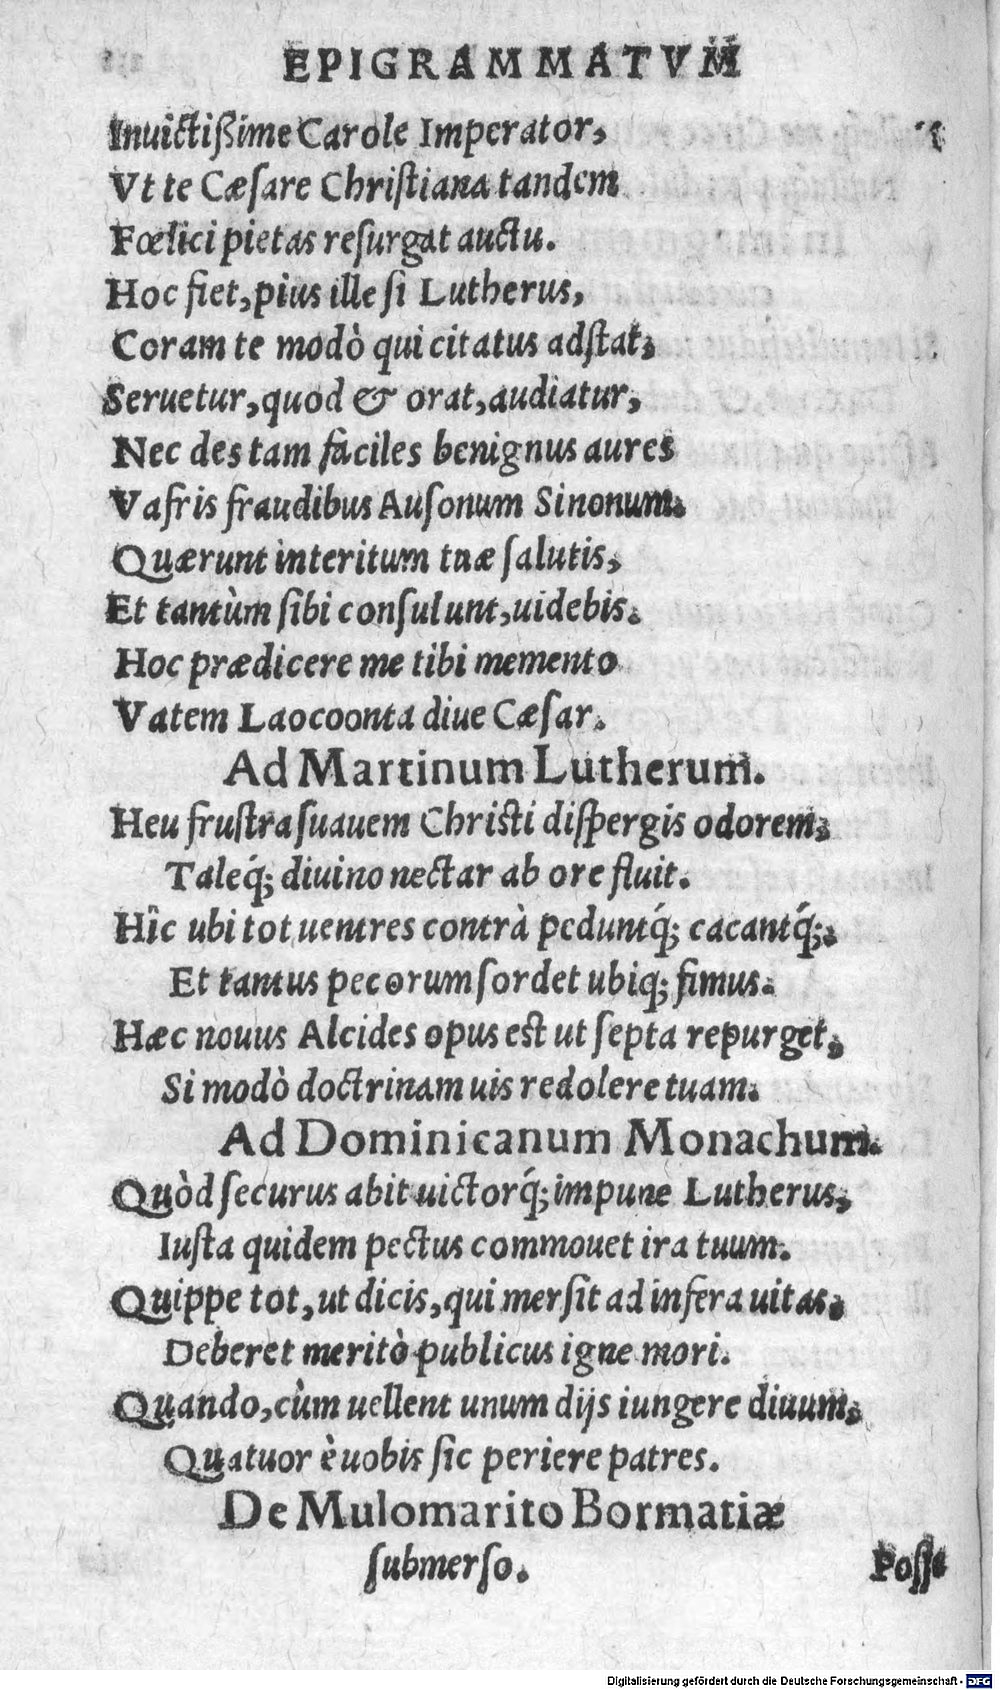 EPIGRAMMATVM
Inuictißime Carole Imperator,
Vt te Cæſare Chriſtiana tandem
Fœlici pietas reſurgat auctu.
Hoc fiet, pius ille ſi Lutherus,
Coram te modò qui citatus adſtat,
Seruetur, quod & orat, audiatur,
Nec des tam faciles benignus aures
Vafris fraudibus Auſonum Sinonum.
Quærunt interitum tuæ ſalutis,
Et tantùm ſibi conſulunt, uidebis.
Hoc prædicere me tibi memento
Vatem Laocoonta diue Cæſar.
Ad Martinum Lutherum.
Heu fruſtra ſuauem Chriſti diſpergis odorem,
Taleq́; diuino nectar ab ore fluit.
Hîc ubi tot uentres contrà peduntq́; cacantq́;.
Et tantus pecorum ſordet ubiq; fimus.
Hæc nouus Alcides opus est ut ſepta repurget,
Si modò doctrinam uis redolere tuam.
Ad Dominicanum Monachum.
Quòd ſecurus abit uictorq́; impune Lutherus,
Iuſta quidem pectus commouet ira tuum.
Quippe tot, ut dicis, qui merſit ad infera uitas,
Deberet meritò publicus igne mori.
Quando, cùm uellent unum dijs iungere diuum,
Quatuor è uobis ſic periere patres.
De Mulomarito Bormatiæ
ſubmerſo.
Poſſe
Digitalisierung gefördert durch die Deutsche Forschungsgemeinschaft - DFG